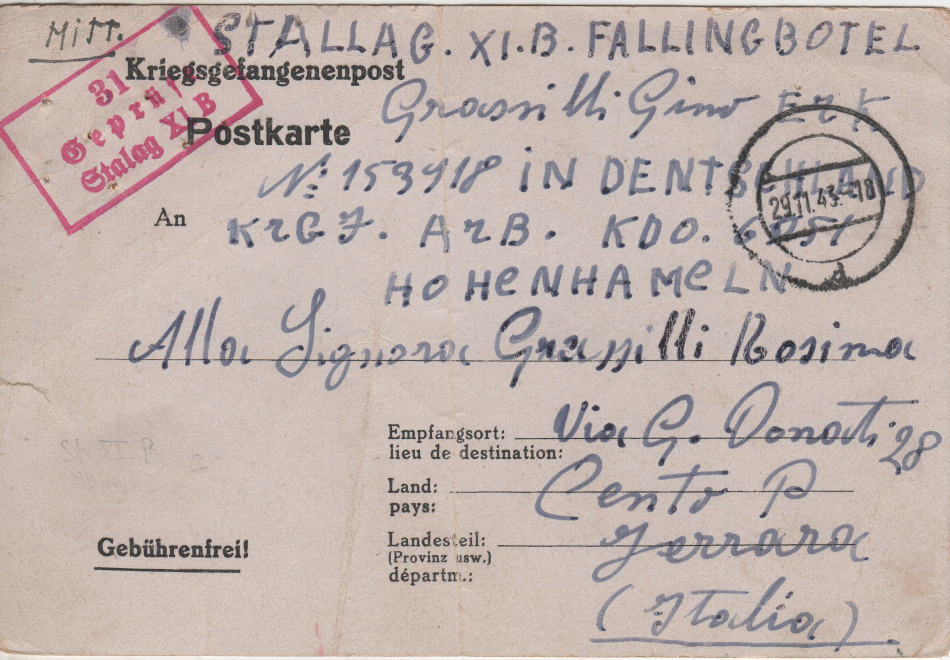 Mitt.
STALLAG. XI.B. FALLINGBOTEL
Kriegsgefangenenpost
31
Geprüft
Stalag XI B
Grassilli Gino
Postkarte
29.11.43.-18
IN DENTSCHLAND
An
KRGF. ARB. KDO.
HOHENHAMELN
Alla Signora Grassilli Rosima
Empfangsort: Via G. Donati 28
lieu de destination:
Land: Cento P
pays:
Landesteil: Ferrara
(Provinz usw.)
départm.:
Gebührenfrei!
(Italia)